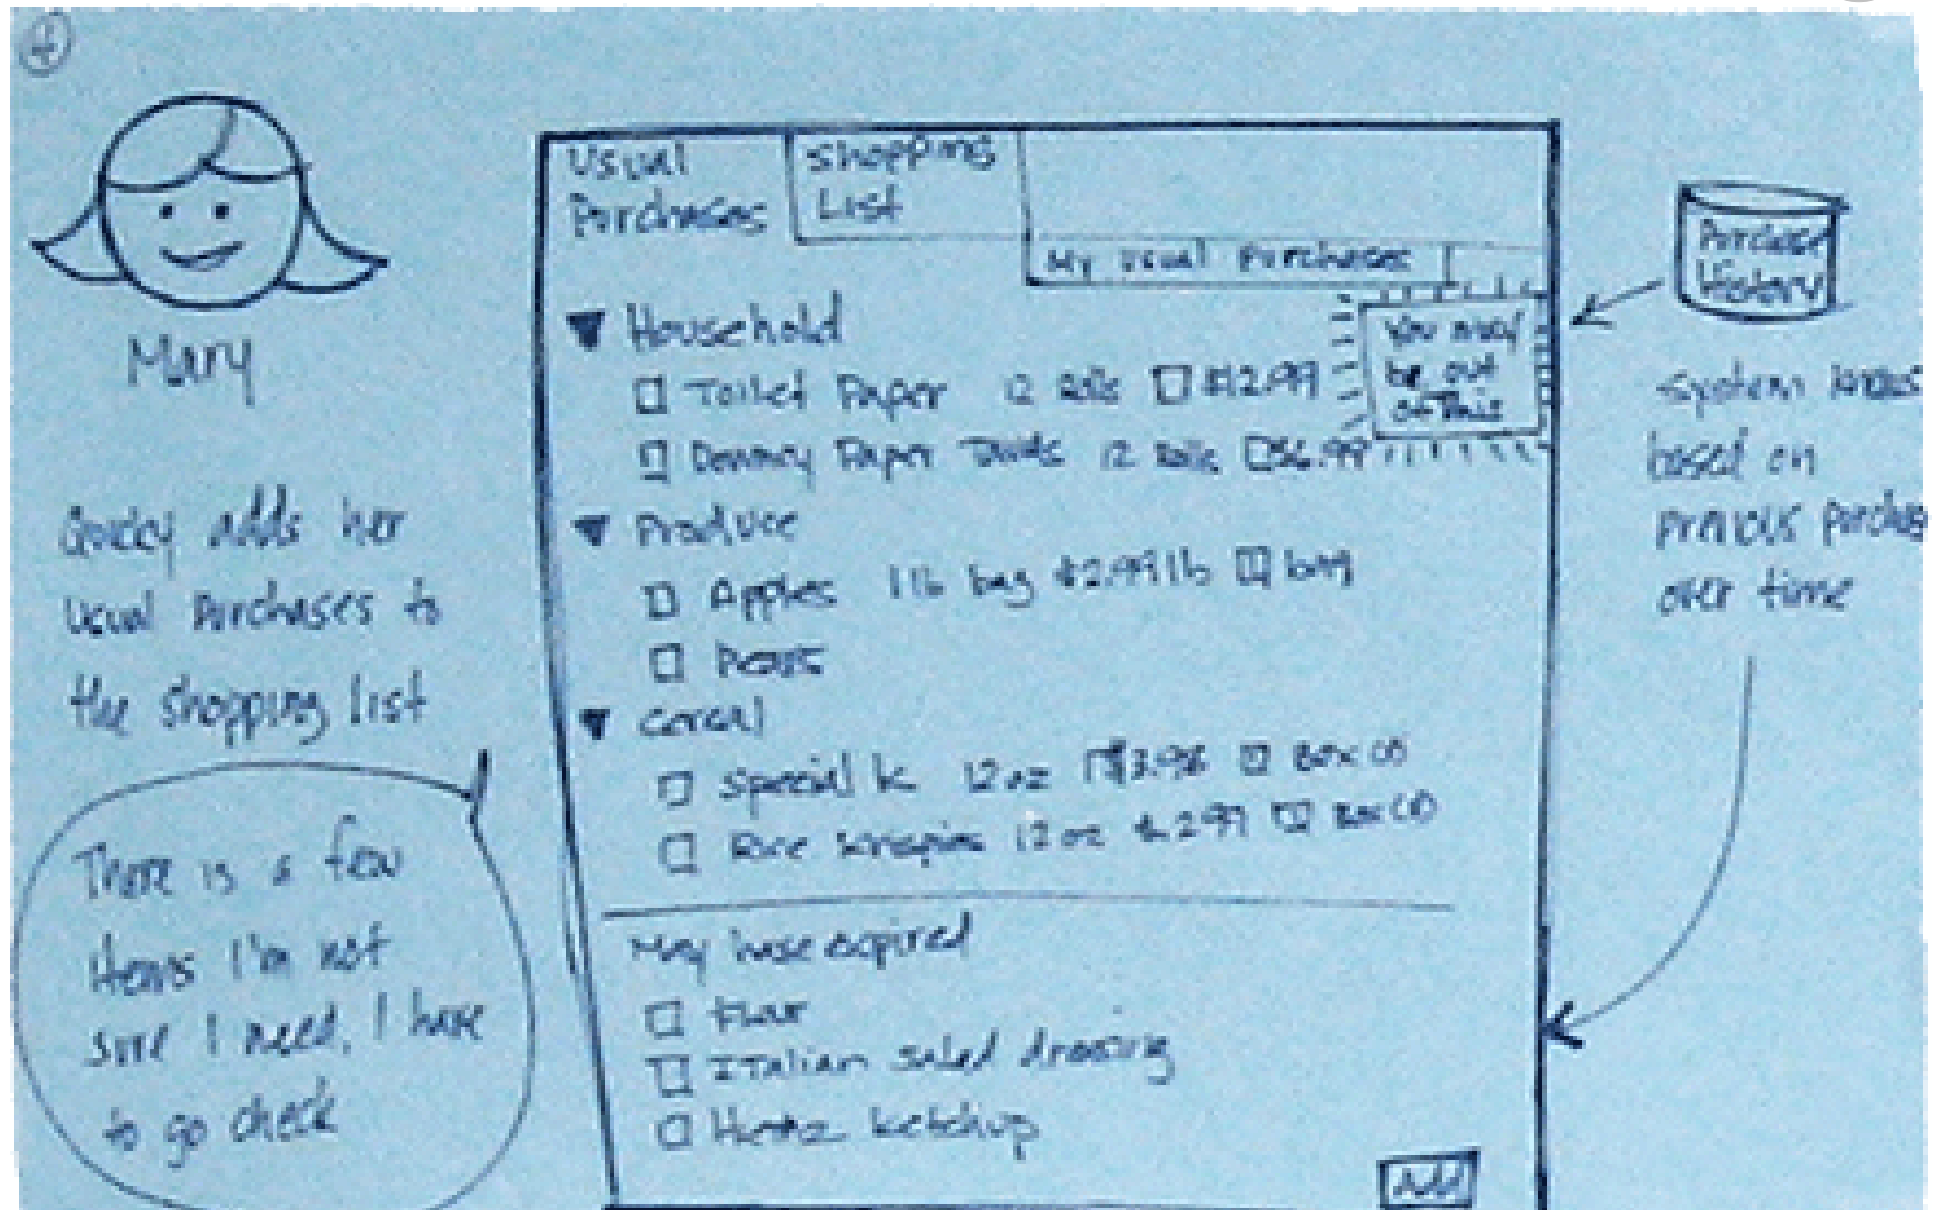 Mary
Quicky adds her
Usual Purchases to
the shopping list
There is a few
items I'm not
sure I need. I have
to go check
Usual
Purchases
Shopping
List
My Usual Purchases
Household
Toilet Paper 12 Rolls $12.99
You may
be out
of this
Paper Towels 12 Rolls $6.99
Produce
Apples 1 lb bag $2.99 lb bag
Pears
Cereal
Special K 12 oz $3.98 Box
Rice Krispies 12 oz $2.99 Box
May have expired
Flour
Italian salad dressing
Heinz ketchup
Add
Purchase
History
System knows
based on
previous purchas
over time